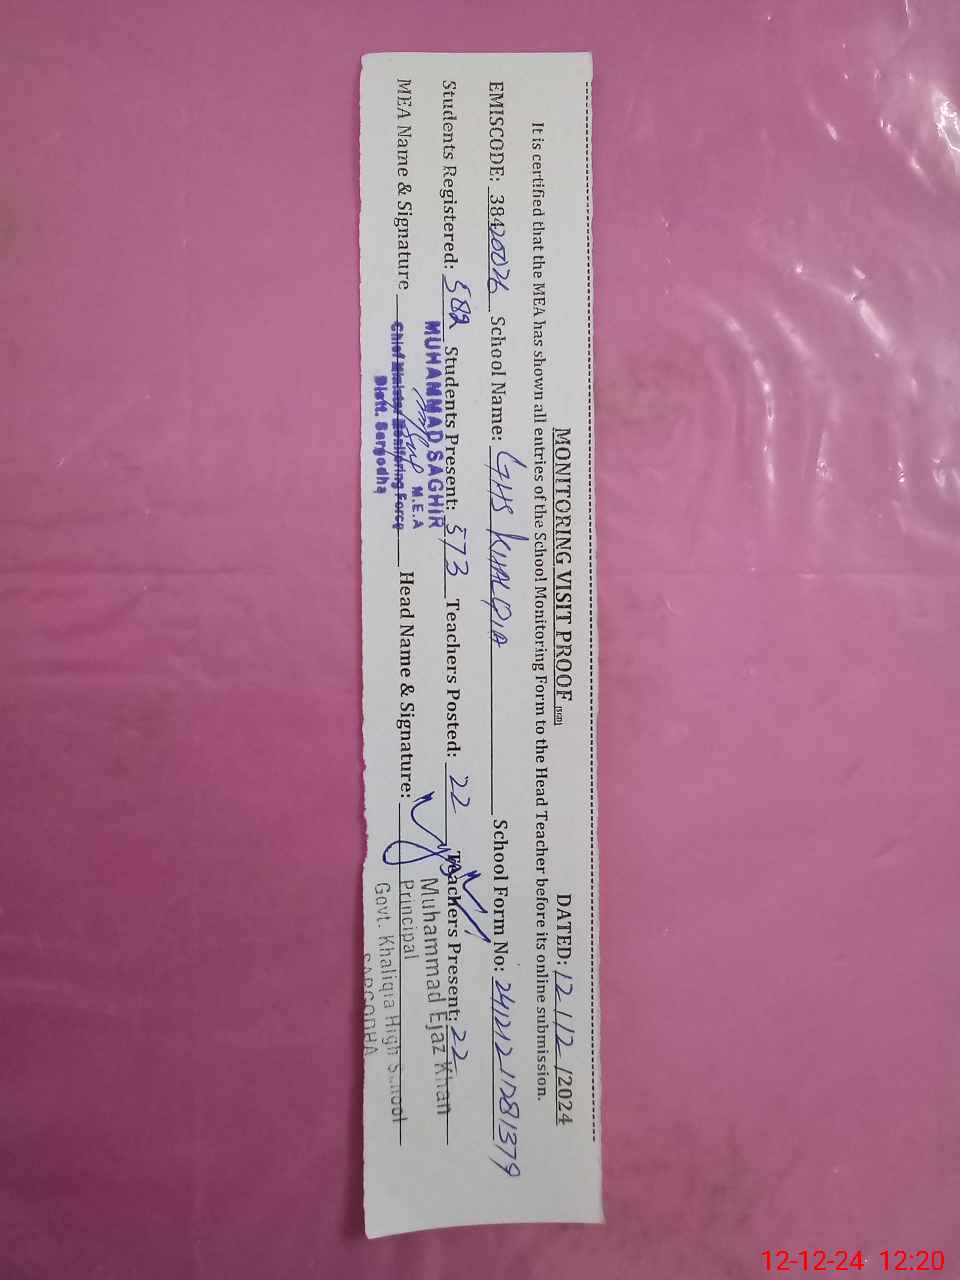 MONITORING VISIT PROOF (SGD) DATED: 12/12/2024
It is certified that the MEA has shown all entries of the School Monitoring Form to the Head Teacher before its online submission.
EMISCODE: 38420026 School Name: GHS KHALQIA School Form No: 2412121281379
Students Registered: 582 Students Present: 573 Teachers Posted: 22 Teachers Present: 22
MUHAMMAD SAGHIR
M.E.A
MEA Name & Signature Chief Minister Monitoring Force Head Name & Signature:
Distt. Sargodha
Muhammad Ejaz Khan
Principal
Govt. Khaliqia High School
SARGODHA
12-12-24 12:20